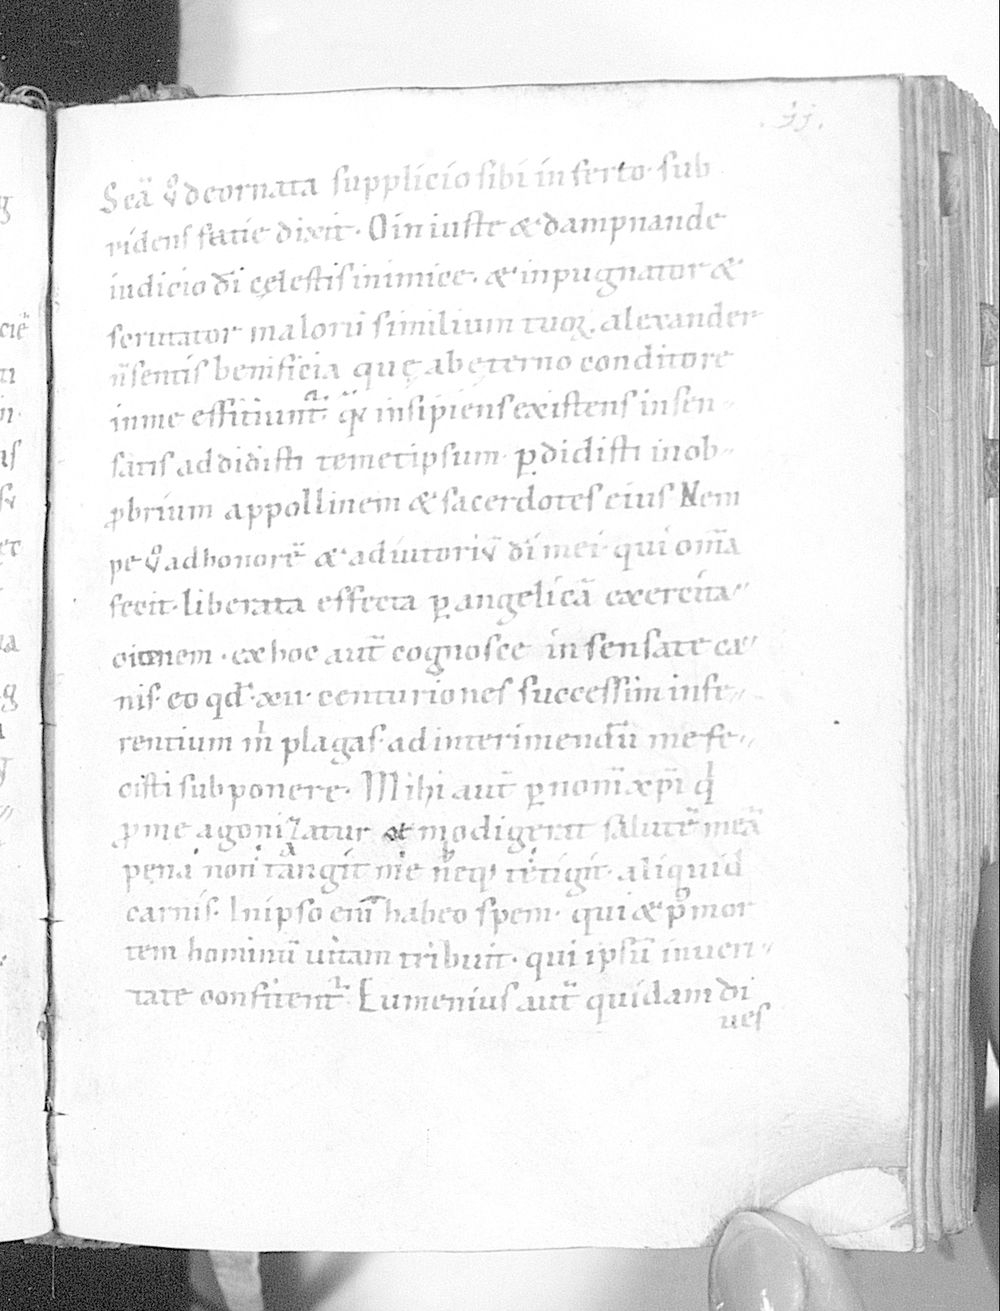 .33.
Scā v̊ decornata supplicio sibi inserto· sub
ridens satie dixit· O iniuste & dampnande
iudicio dī cęlestis inimice· & inpugnator &
scrutator malorū similium tuoꝝ. alexander
n̄ sentis benificia quę ab ęterno conditore
in me effitiunt᷑· insipiens existens insen-
satis addidisti temetipsum· ꝑdidisti inob-
ꝓbrium appollinem & sacerdotes eius Nem
pe v̊ ad honorē & adiutoriū dī mei· qui om̄a
fecit· liberata effecta ꝑ angelicā exercita-
cionem· ex hoc aut̄ cognosce insensate ca-
nis· eo qd̄ xii· centuriones successim infe-
rentium m̄ plagas· ad interimendū me fe-
cisti subponere· Mihi aut̄ ꝑ nom̄ xp̄i q̇
ꝓ me agonizatur & salutē meā
pena non tangit me neq; tetigit· aliquid
carnis· In ipso eni̅ habeo spem· qui & p̄ mor
tem hominū uitam tribuit· qui ipsū inueri-
tate confitent᷑· Eumenius aut̄ quidam di
ues